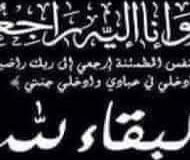 وإنا إليه راجعو
النفس المطمئنة ارجعي إلى ربك راضية
دخلي في عبادي وادخلي جنتي ﴾
لبقاء لله